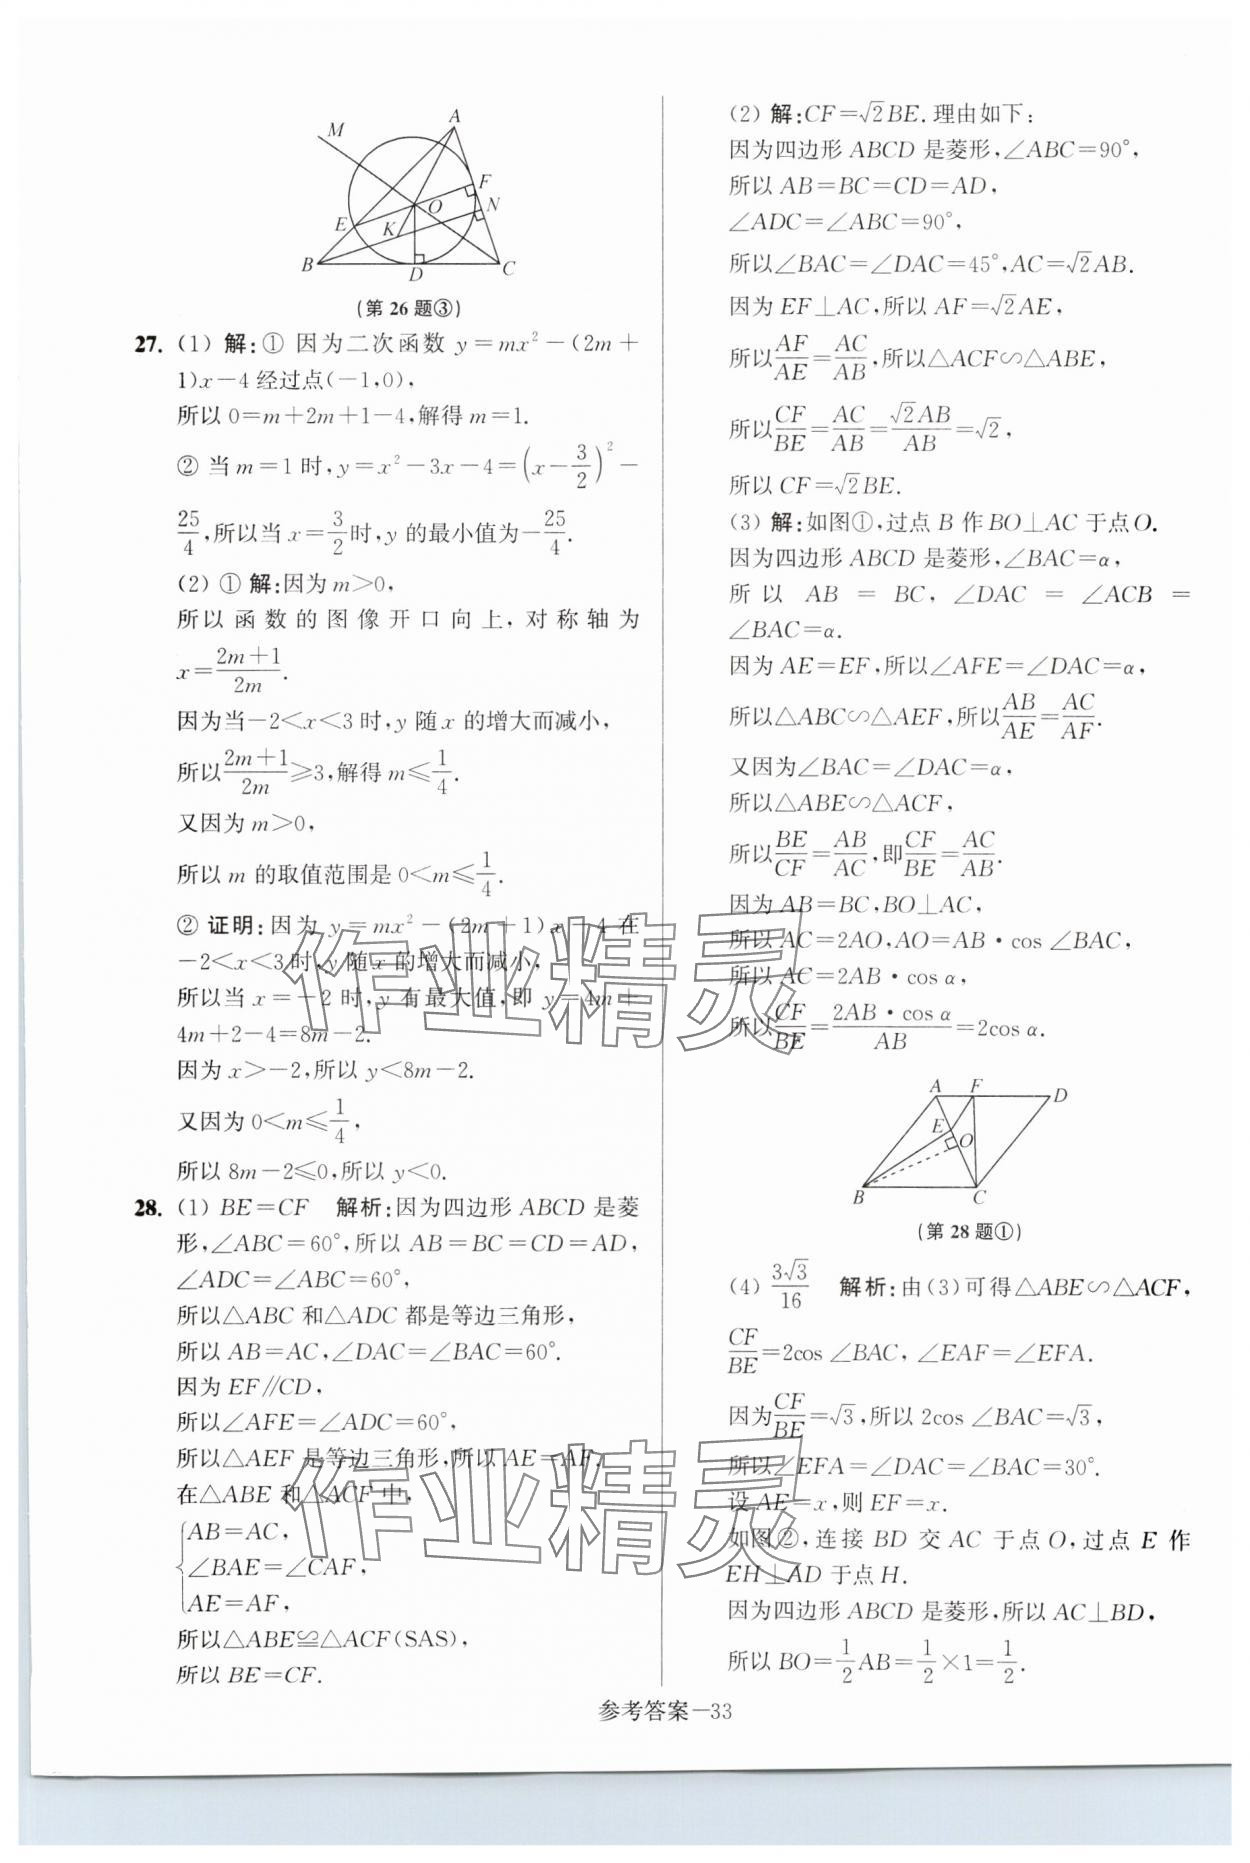 A
M
F
O
N
E
K
B
D
C
(第26题③)
27. (1) 解:① 因为二次函数 y=mx²-(2m+
1)x-4经过点(-1,0),
所以 0=m+2m+1-4,解得 m=1.
② 当 m=1时,y=x²-3x-4=(x-3/2)²-
25/4,所以当 x=3/2时,y 的最小值为-25/4.
(2) ① 解:因为 m>0,
所以函数的图像开口向上,对称轴为
x=(2m+1)/(2m).
因为当-2<x<3时,y 随 x 的增大而减小,
所以(2m+1)/(2m)≥3,解得 m≤1/4.
又因为 m>0,
所以 m 的取值范围是 0<m≤1/4.
② 证明:因为 y=mx²-(2m+1)x-4 在
-2<x<3时,y 随 x 的增大而减小,
所以当 x=-2时,y 有最大值,即 y=4m+
4m+2-4=8m-2.
因为 x>-2,所以 y<8m-2.
又因为 0<m≤1/4,
所以 8m-2≤0,所以 y<0.
28. (1) BE=CF 解析:因为四边形 ABCD 是菱
形,∠ABC=60°,所以 AB=BC=CD=AD,
∠ADC=∠ABC=60°,
所以△ABC 和△ADC 都是等边三角形,
所以 AB=AC,∠DAC=∠BAC=60°.
因为 EF∥CD,
所以∠AFE=∠ADC=60°,
所以△AEF 是等边三角形,所以 AE=AF.
在△ABE 和△ACF 中,
{AB=AC,
∠BAE=∠CAF,
AE=AF,
所以△ABE≌△ACF(SAS),
所以 BE=CF.
(2) 解:CF=√2BE.理由如下:
因为四边形 ABCD 是菱形,∠ABC=90°,
所以 AB=BC=CD=AD,
∠ADC=∠ABC=90°,
所以∠BAC=∠DAC=45°,AC=√2AB.
因为 EF⊥AC,所以 AF=√2AE,
所以AF/AE=AC/AB,所以△ACF∽△ABE,
所以CF/BE=AC/AB=√2AB/AB=√2,
所以 CF=√2BE.
(3) 解:如图①,过点 B 作 BO⊥AC 于点 O.
因为四边形 ABCD 是菱形,∠BAC=α,
所以 AB = BC, ∠DAC = ∠ACB =
∠BAC=α.
因为 AE=EF,所以∠AFE=∠DAC=α,
所以△ABC∽△AEF,所以AB/AE=AC/AF.
又因为∠BAC=∠DAC=α,
所以△ABE∽△ACF,
所以BE/CF=AB/AC,即CF/BE=AC/AB.
因为 AB=BC,BO⊥AC,
所以 AC=2AO,AO=AB·cos ∠BAC,
所以 AC=2AB·cos α,
所以CF/BE=(2AB·cos α)/AB=2cos α.
A
F
D
E
O
B
C
(第28题①)
(4) 3√3/16 解析:由(3)可得△ABE∽△ACF,
CF/BE=2cos ∠BAC,∠EAF=∠EFA.
因为CF/BE=√3,所以 2cos ∠BAC=√3,
所以∠EFA=∠DAC=∠BAC=30°.
设 AE=x,则 EF=x.
如图②,连接 BD 交 AC 于点 O,过点 E 作
EH⊥AD 于点 H.
因为四边形 ABCD 是菱形,所以 AC⊥BD,
所以 BO=1/2AB=1/2×1=1/2.
参考答案—33
作业精灵
作业精灵